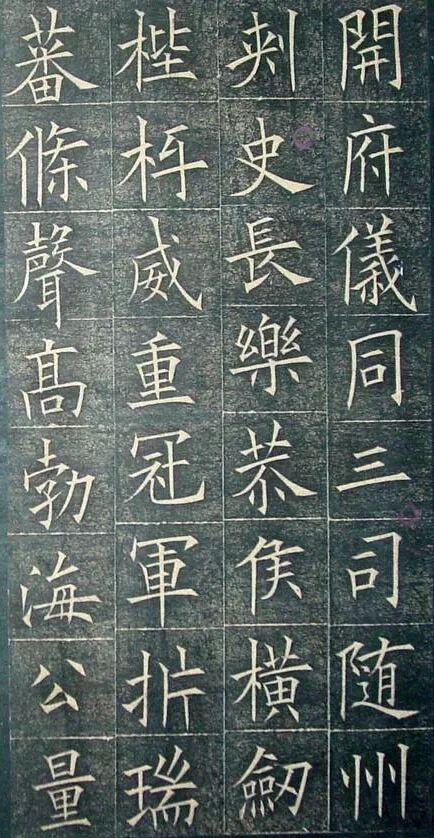 開府儀同三司随州
刺史長樂恭侯橫劒
梐枑威重冠軍扸瑞
蕃條聲髙勃海公量